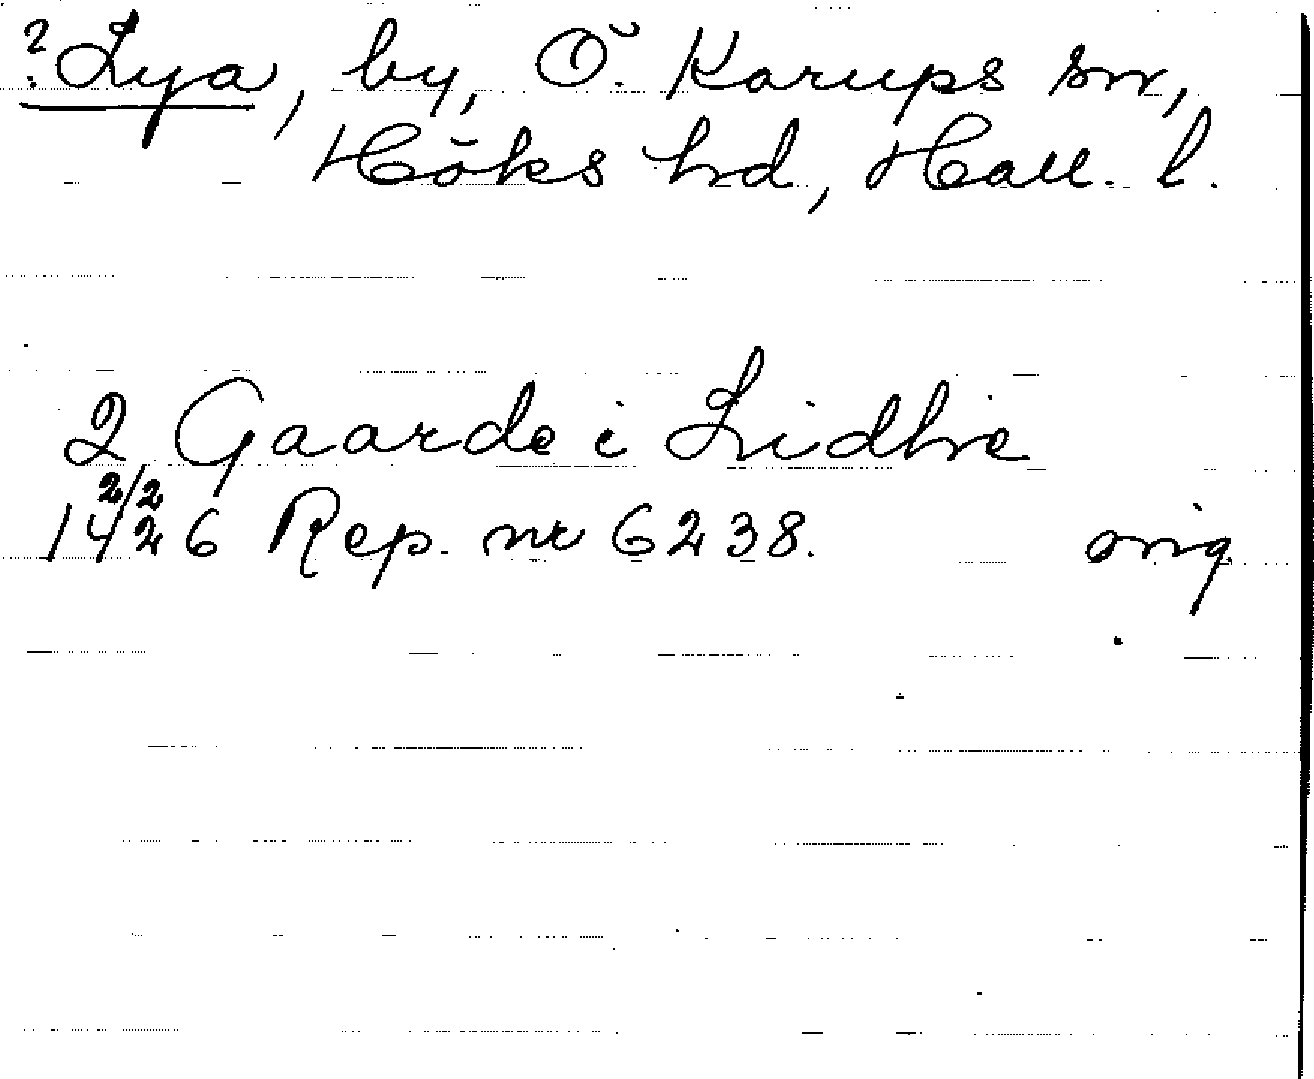 ? Lya, by, Ö. Karups sn,
Höks hd, Hall. l.
2 Gaarde i Lidhie
2/2
1426 Rep. nr 6238. orig.